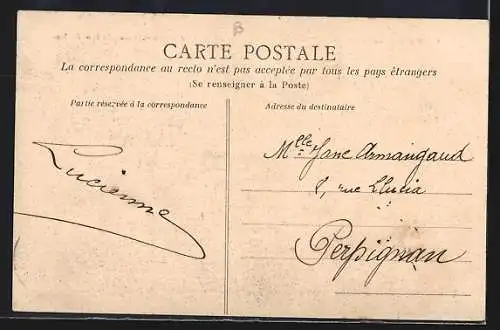 B
CARTE POSTALE
La correspondance au recto n'est pas acceptée par tous les pays étrangers
(Se renseigner à la Poste)
Partie réservée à la correspondance
Adresse du destinataire
Lucienne
Mlle Jane Armangaud
8, rue Llucia
Perpignan